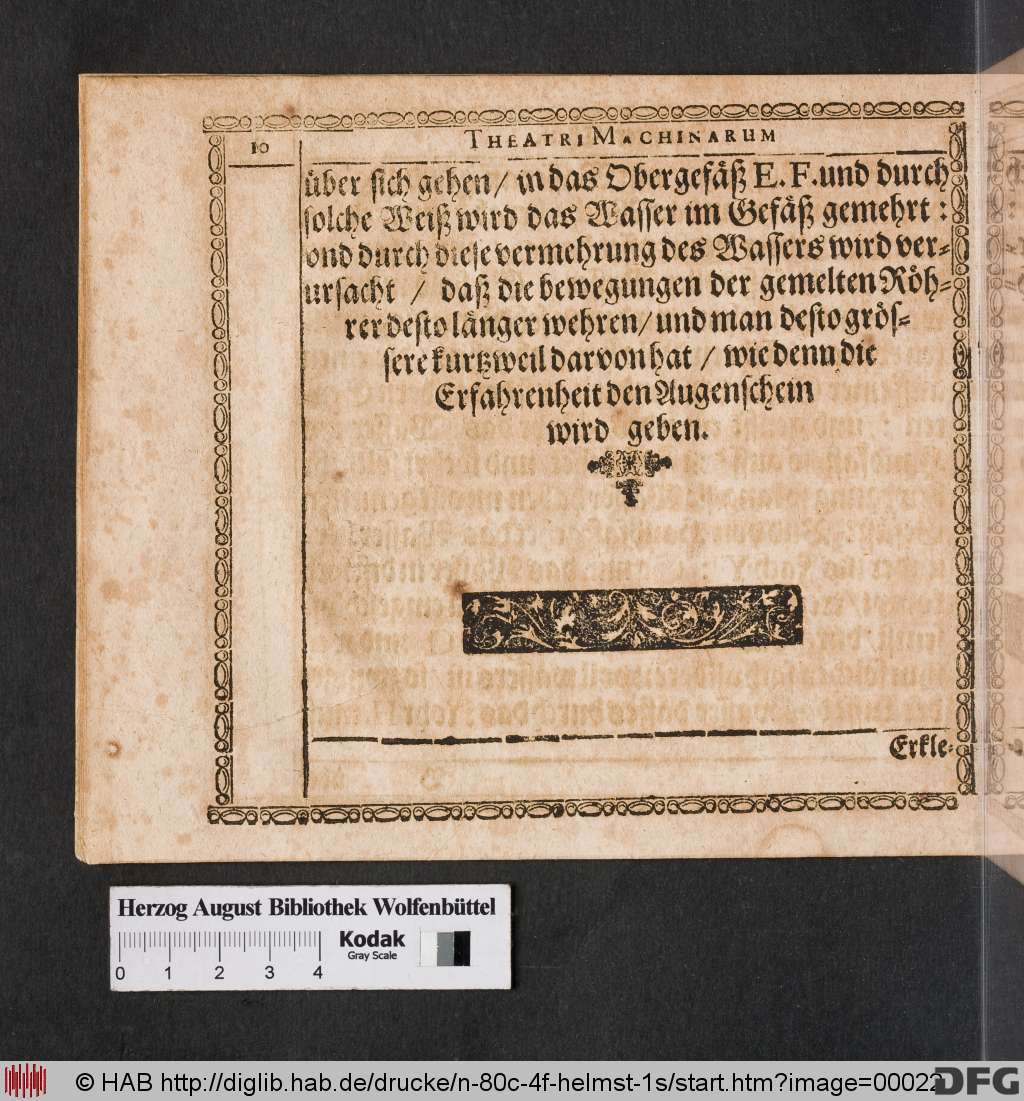 10
THEATRI MACHINARUM
über sich gehen / in das Obergefäß E. F. und durch
solche Weiß wird das Wasser im Gefäß gemehrt :
ond durch diese vermehrung des Wassers wird ver-
ursacht / daß die bewegungen der gemelten Röh-
rer desto länger wehren / und man desto grös-
sere kurtzweil darvon hat / wie denn die
Erfahrenheit den Augenschein
wird geben.
Erkle-
Herzog August Bibliothek Wolfenbüttel
Kodak
Gray Scale
0 1 2 3 4
© HAB http://diglib.hab.de/drucke/n-80c-4f-helmst-1s/start.htm?image=00022
DFG